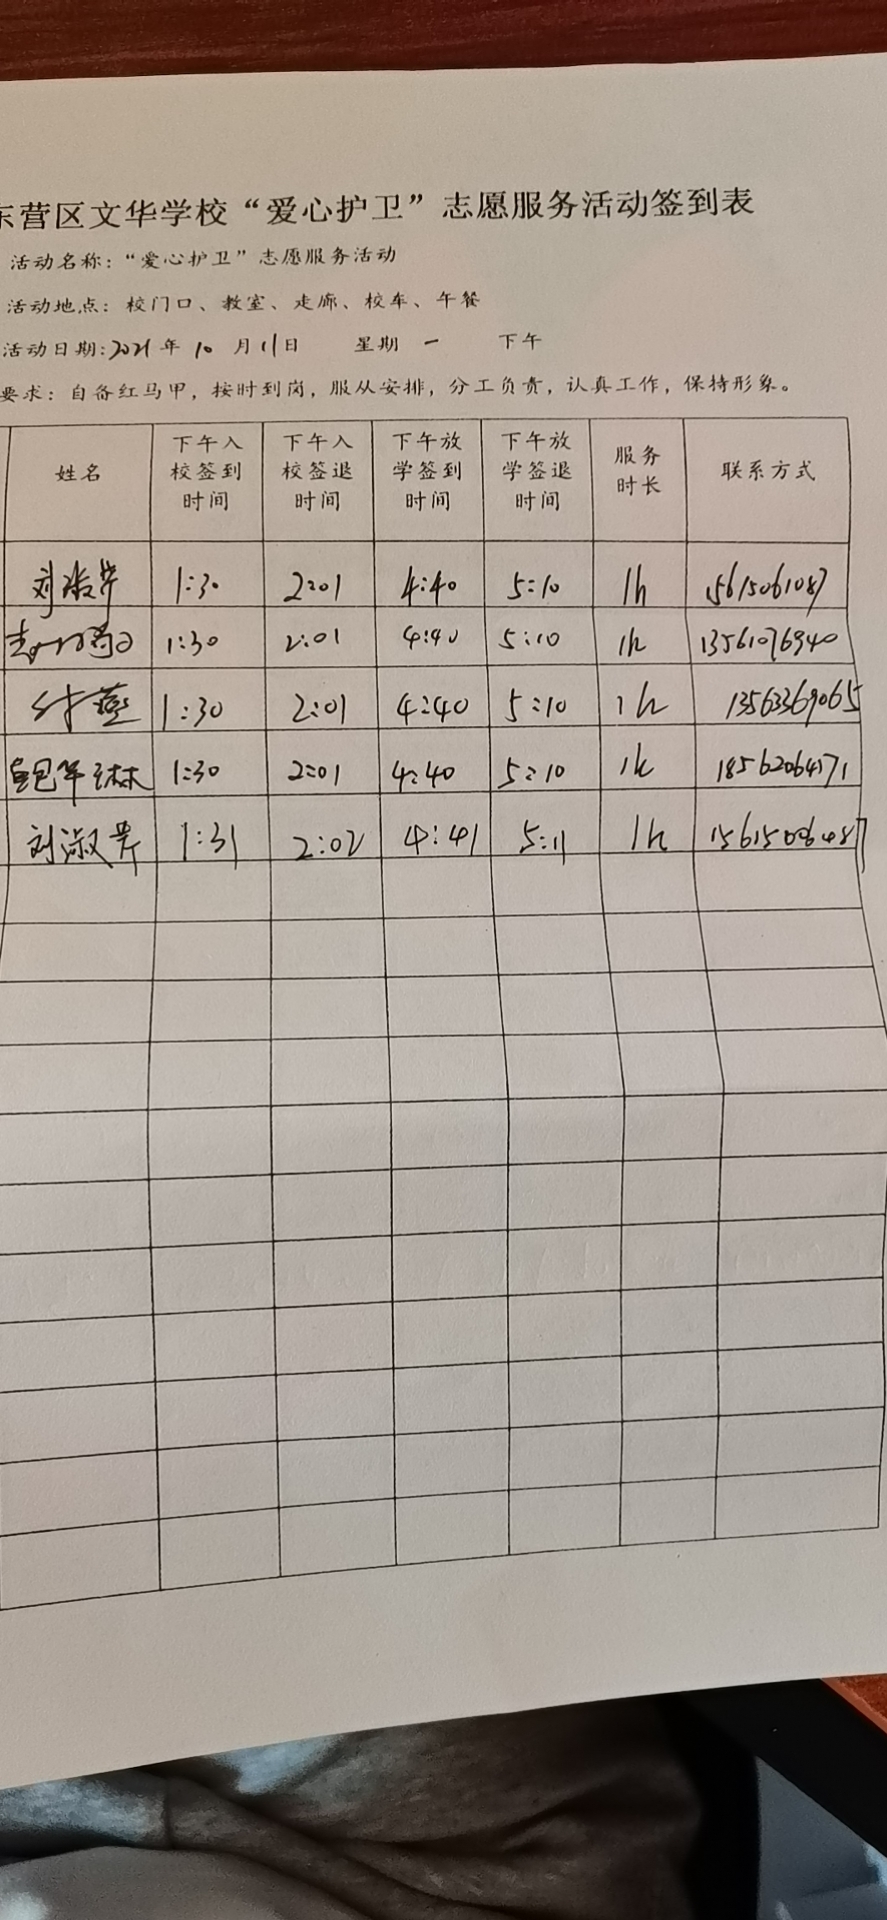 东营区文华学校“爱心护卫”志愿服务活动签到表
活动名称：“爱心护卫”志愿服务活动
活动地点：校门口、教室、走廊、校车、午餐
活动日期:2021年 10 月 11日 星期 一 下午
要求：自备红马甲，按时到岗，服从安排，分工负责，认真工作，保持形象。
姓名 下午入校签到时间 下午入校签退时间 下午放学签到时间 下午放学签退时间 服务时长 联系方式
刘 1:30 2:01 4:40 5:10 1h 15615061087
1:30 2:01 4:40 5:10 1h 13561076940
燕 1:30 2:01 4:40 5:10 1h 13563369065
1:30 2:01 4:40 5:10 1h 18562064171
刘淑芹 1:31 2:02 4:41 5:11 1h